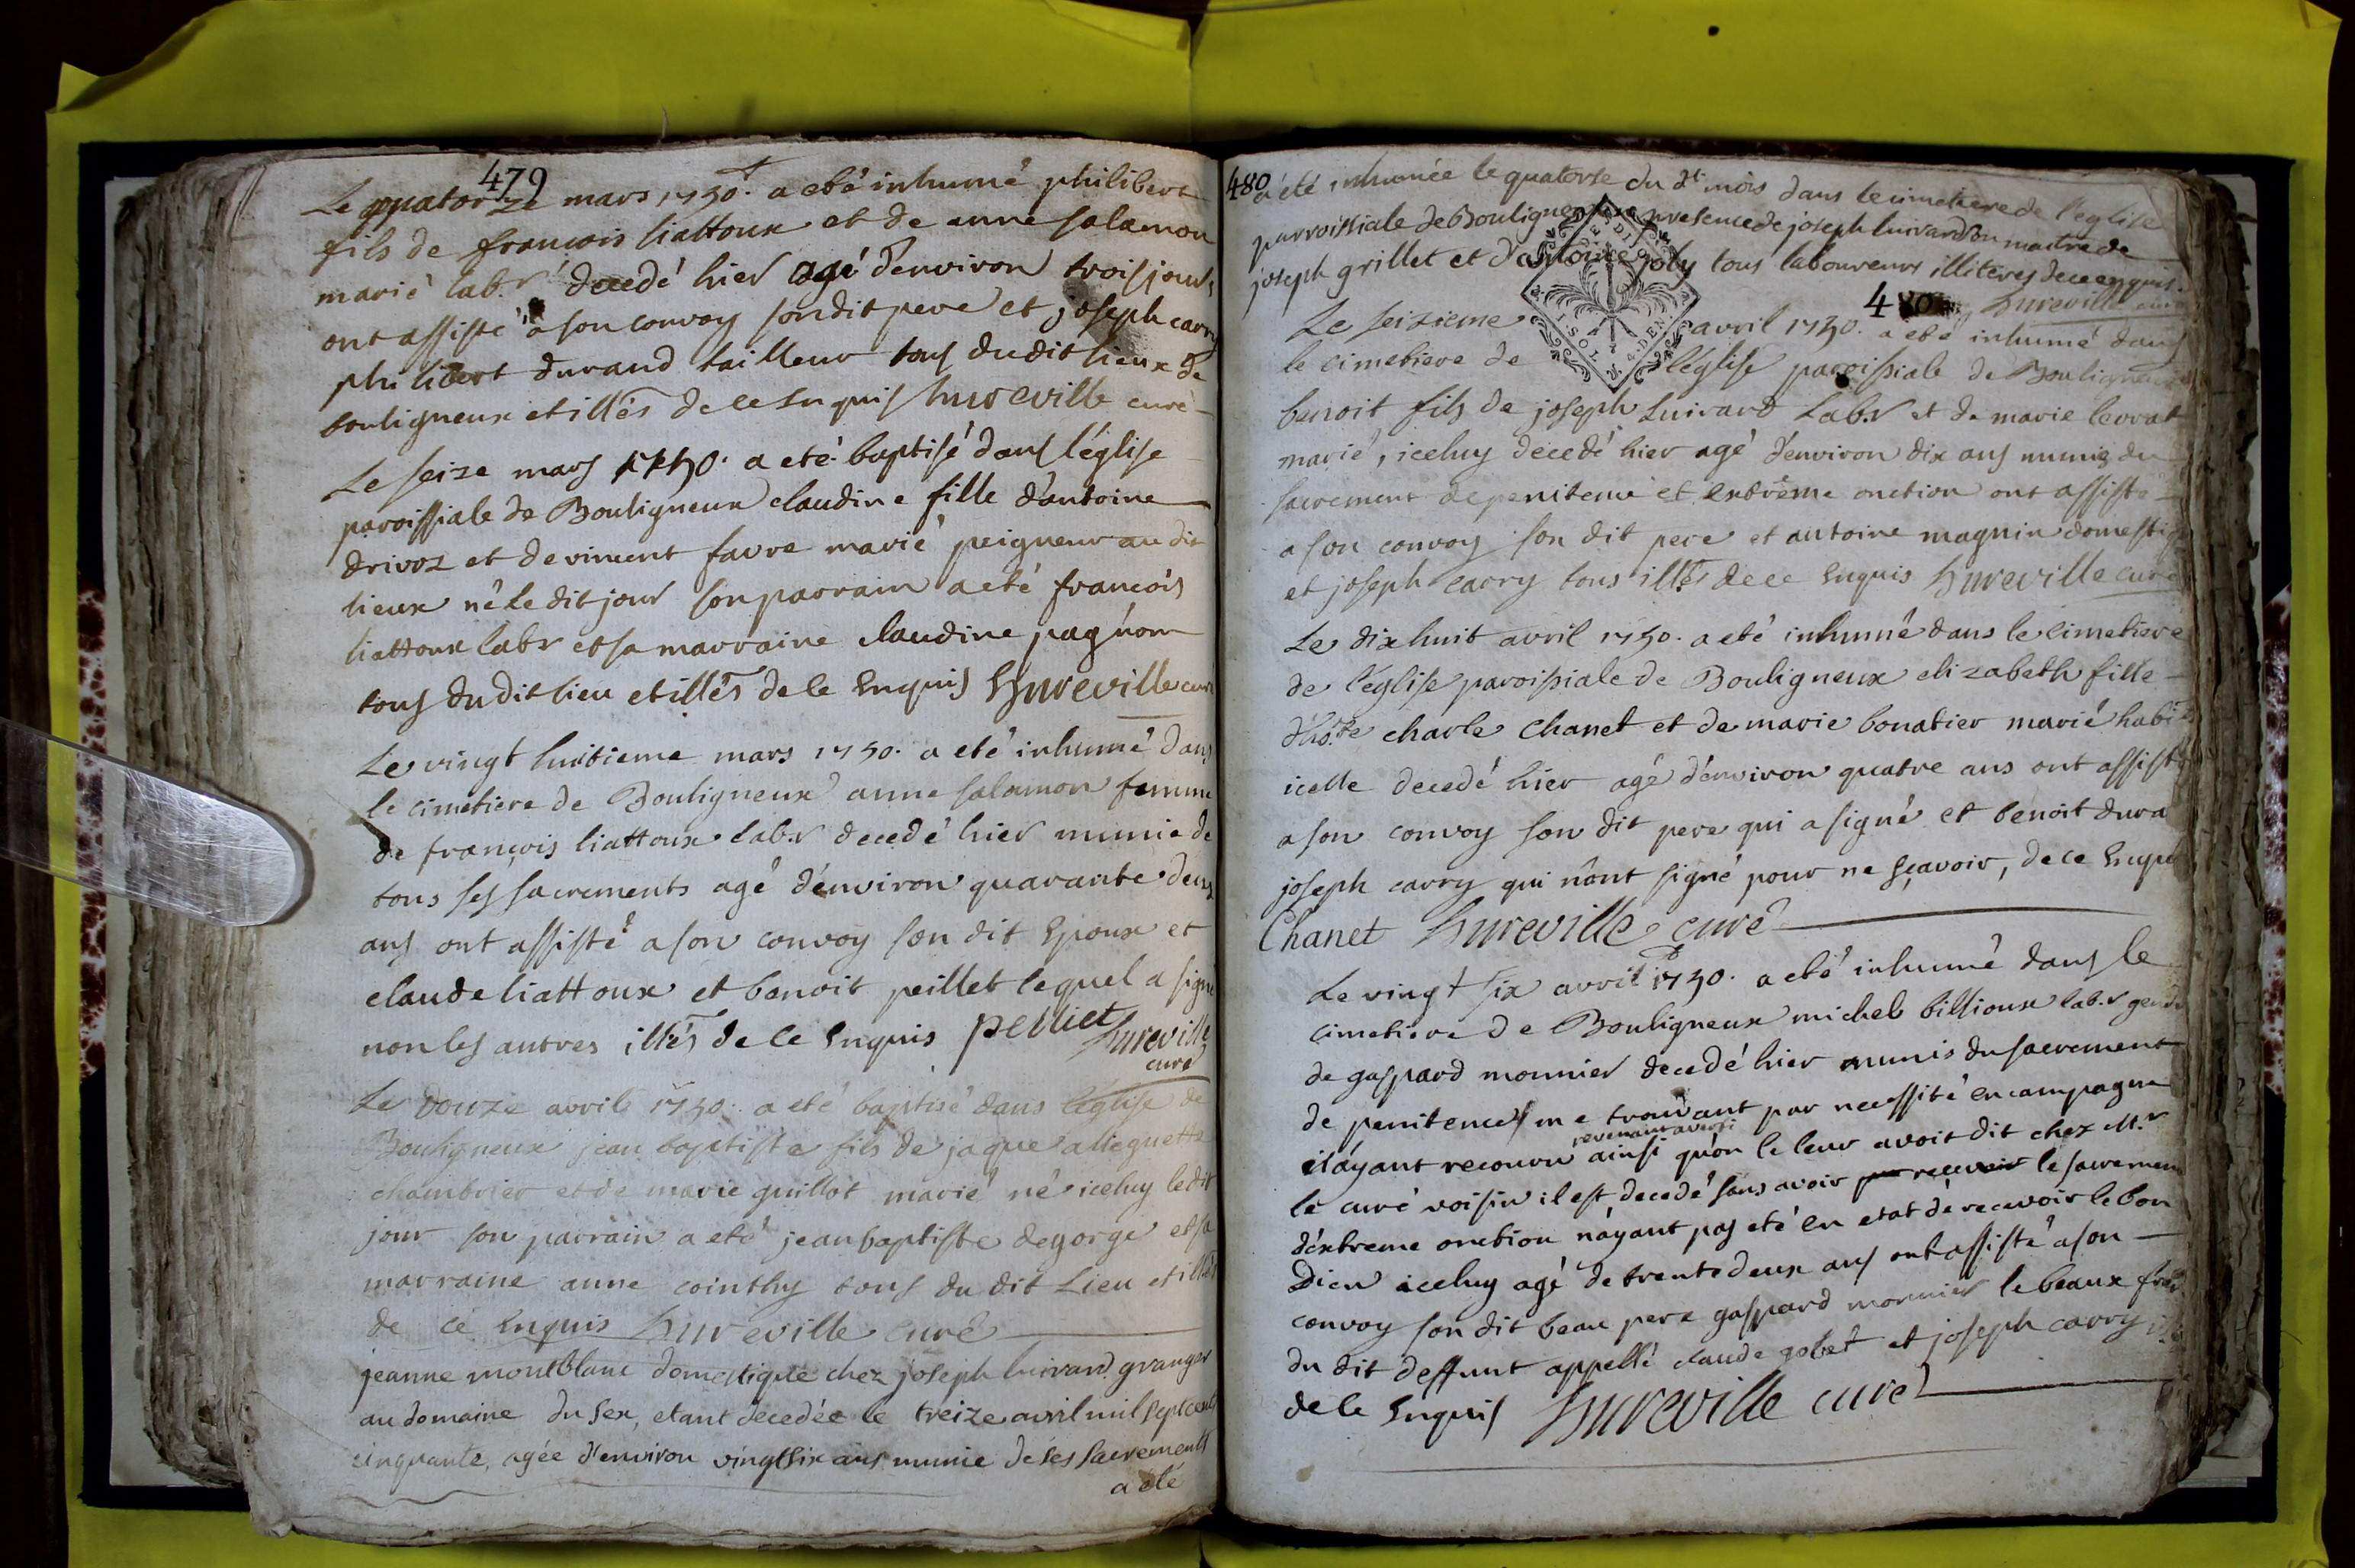 479
Le quatorze mars 1750. a eté inhumé philibert
fils de francois liattoux et de anne salamon
marié lab.r decedé hier agé d'environ trois jours
ont assisté a son convoy son dit pere et joseph carry
philibert durand tailleur tous du dit lieux de
bouligneux et illés de ce Enquis hureville curé
Le seize mars 1750. a eté baptisé dans l'église
paroissiale de Bouligneux claudine fille d'antoine
drivoz et de vincent favre marié peigneur au dit
lieux né le dit jour son parrain a eté francois
liattoux labr et sa marraine claudine pagnon
tous du dit lieu et illés de ce Enquis hureville curé
Le vingt huitieme mars 1750. a eté inhumé dans
le cimetiere de Bouligneux anne salamon femme
de francois liattoux lab.r decedé hier munie de
tous ses sacrements agé d'environ quarante deux
ans ont assisté a son convoy son dit Epoux et
claude liattoux et benoit peillet lequel a signé
non les autres illés de ce Enquis peilliet hureville
curé
Le douze avril 1750. a eté baptisé dans l'église de
Bouligneux jean baptiste fils de jaque
chambrier et de marie guillot marié né iceluy le dit
jour son parrain a eté jean baptiste degorge et sa
marraine anne cointhy tous du dit Lieu et illés
de ce Enquis hureville curé
jeanne montblanc domestique chez joseph luivard granger
au domaine du sex, etant decedée le treize avril mil sept cents
cinquante, agée d'environ vingt six ans munie de ses sacrements
a été
480
a été inhumée le quatorse du dt mois dans le cimetiere de l'eglise
parroissiale de Bouligneux presence de joseph luivard son maitre de
joseph grillet et d'antoine joly tous laboureurs illiteres de ce enquis.
480 hureville curé
Le seizieme avril 1750. a eté inhumé dans
le cimetiere de l'église paroissiale de Bouligneux
benoit fils de joseph Luivard Lab.r et de marie levrat
marié, iceluy decedé hier agé d'environ dix ans munis du
sacrement de penitence et extrême onction ont assisté
a son convoy son dit pere et antoine magnin domestiq
et joseph carry tous illés de ce Enquis hureville curé
Le dix huit avril 1750. a eté inhumé dans le cimetiere
de l'église paroissiale de Bouligneux elizabeth fille
d'ho.te charle Chanet et de marie bonatier marié habi
icelle decedé hier agé d'environ quatre ans ont assisté
a son convoy son dit pere qui a signé et benoit dura
joseph carry qui n'ont signé pour ne sçavoir, de ce Enquis
Chanet hureville curé
Le vingt six avril 1750. a eté inhumé dans le
cimetiere de Bouligneux michel billioux lab.r gendr
de gaspard monnier decedé hier munis du sacrement
de penitence, me trouvant par necessité en campagne
revenant averti
et ayant recouru ainsi qu'on le leur avoit dit chez M.r
le curé voisin il est decedé sans avoir recevoir le sacrement
d'extreme onction n'ayant pas eté en etat de recevoir le bon
Dieu iceluy agé de trente deux ans ont assisté a son
convoy son dit beau pere gaspard monnier le beaux frer
du dit deffunt appellé claude gobet et joseph carry
de ce Enquis hureville curé